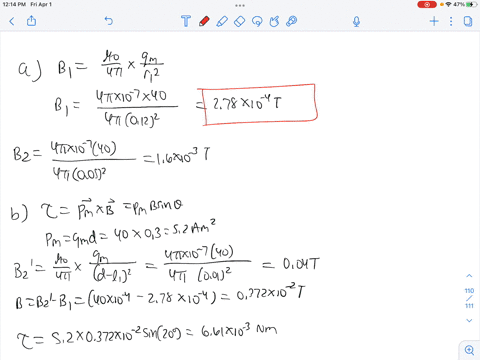 12:14 PM Fri Apr 1
47%
a) B₁ = μ₀/4π × qₘ/r₁²
B₁ = 4π×10⁻⁷×40 / 4π(0.12)² = 2.78×10⁻⁴ T
B₂ = 4π×10⁻⁷(40) / 4π(0.05)² = 1.6×10⁻³ T
b) τ = Pₘ × B = PₘB sinθ
Pₘ = qₘd = 40 × 0.13 = 5.2 Am²
B₂' = μ₀/4π × qₘ/(d-l₁)² = 4π×10⁻⁷(40) / 4π (0.01)² = 0.04T
B = B₂' - B₁ = (40×10⁻⁴ - 2.78 × 10⁻⁴) = 0.372×10⁻² T
τ = 5.2 × 0.372×10⁻² sin(20°) = 6.61×10⁻³ Nm
110
111